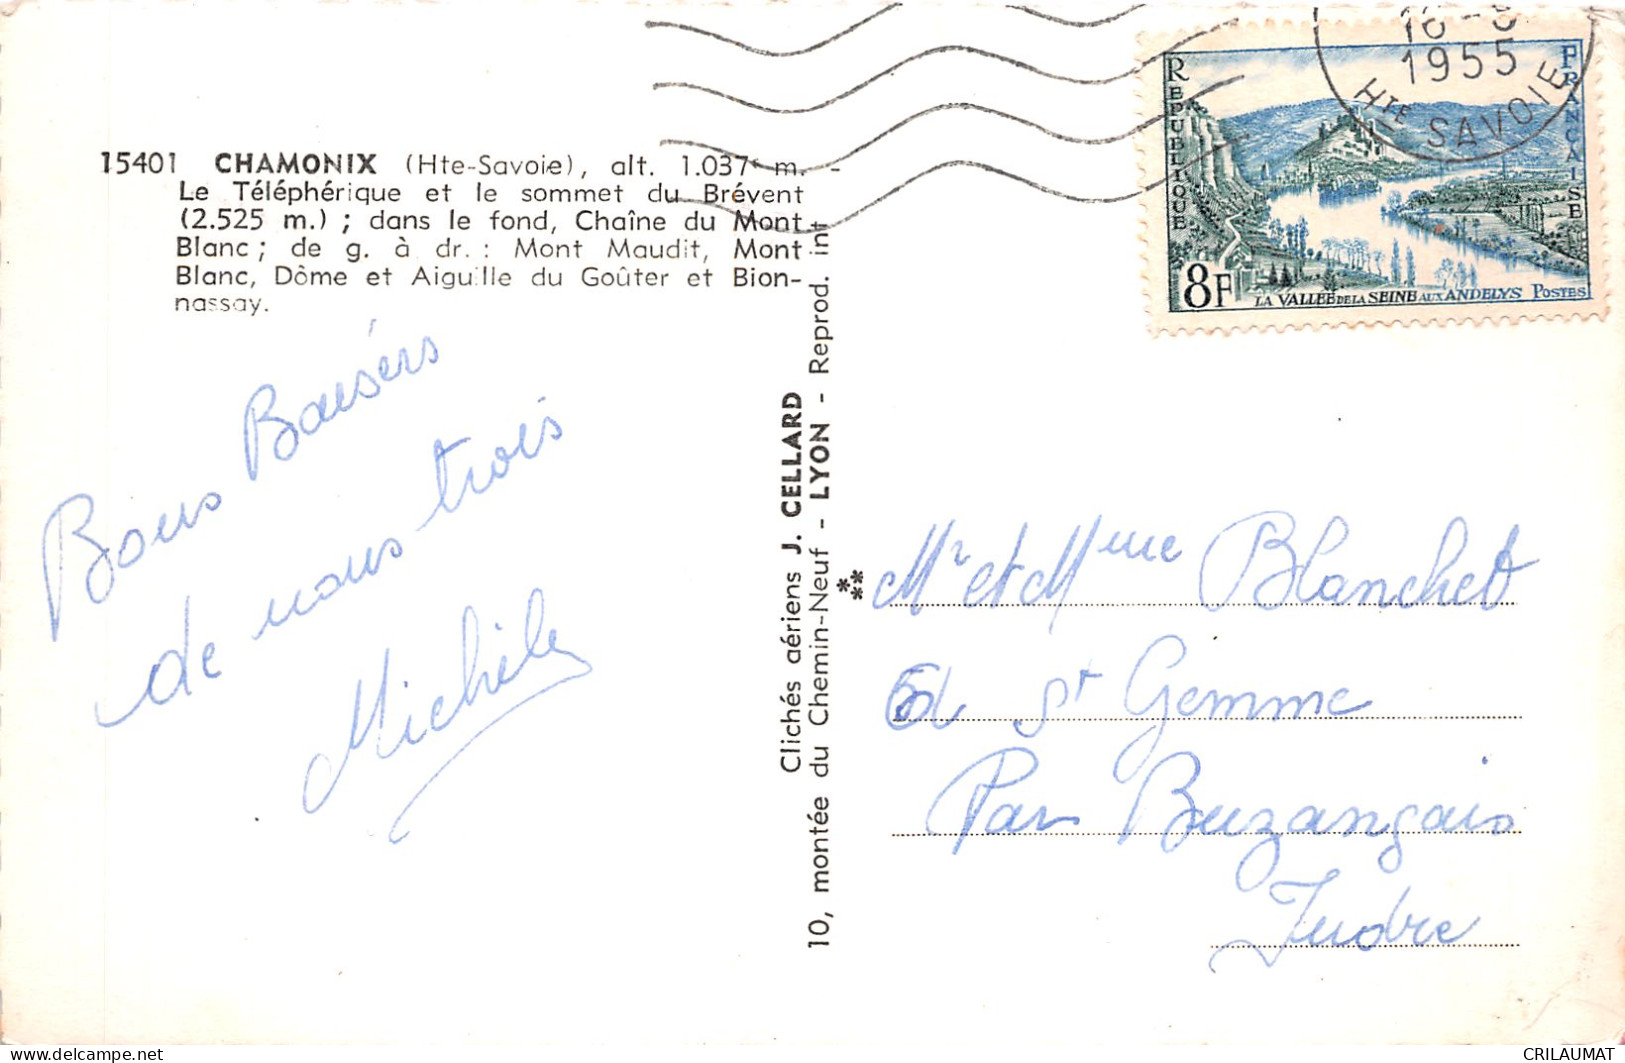 15401 CHAMONIX (Hte-Savoie), alt. 1.037 m. -
Le Téléphérique et le sommet du Brévent
(2.525 m.) ; dans le fond, Chaîne du Mont
Blanc ; de g. à dr. : Mont Maudit, Mont
Blanc, Dôme et Aiguille du Goûter et Bion-
nassay.
Bons Baisers
de nous trois
Michèle
Clichés aériens J. CELLARD
10, montée du Chemin-Neuf - LYON - Reprod. int
1955
HTE SAVOIE
REPUBLIQUE
FRANÇAISE
8F
LA VALLEE DE LA SEINE AUX ANDELYS POSTES
Mr et Mme Blanchet
St Gemme
Par Buzançais
Indre
delcampe.net
CRILAUMAT